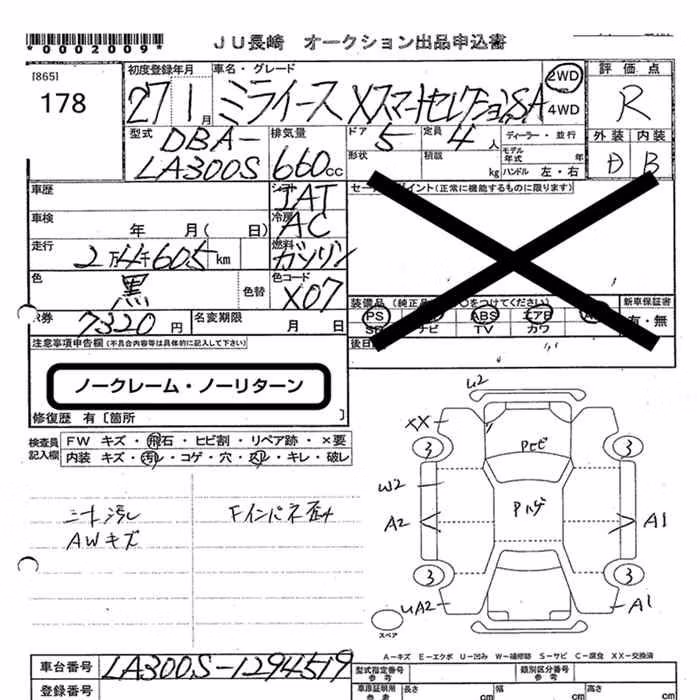 *0002009*
JU長崎 オークション出品申込書
[865]
178
初度登録年月
27年1月
車名・グレード
ミライース XスマートセレクションSA
2WD
4WD
評価点
R
外装 内装
D B
型式
DBA-
LA300S
排気量
660cc
ドア
5
定員
4人
ディーラー・並行
形状
積載
kg
モデル年式
年
ハンドル 左・右
車歴
シフト
IAT
車検
年 月( 日)
冷房
AC
走行
2万4千605km
燃料
ガソリン
色
黒
色替
色コード
X07
R券
7320円
名変期限
月 日
セールスポイント(正常に機能するものに限ります)
装備品(純正品
○をつけてください)
新車保証書
有・無
PS
ABS
エアB
ナビ
TV
カワ
後日
注意事項申告欄(不具合内容等は具体的に記入して下さい)
ノークレーム・ノーリターン
修復歴 有〔箇所 〕
検査員記入欄
FW キズ・飛石・ヒビ割・リペア跡・×要
内装 キズ・汚れ・コゲ・穴・スレ・キレ・破レ
シート汚レ
AWキズ
Fインパネ歪み
U2
XX
3
3
Pトビ
W2
Pハゲ
A2
A1
3
3
UA2
A1
スペア
A-キズ E-エクボ U-凹み W-補修跡 S-サビ C-腐食 XX-交換済
車台番号
LA300S-1294519
登録番号
型式指定番号
参考
類別区分番号
参考
車庫証明用
参考
長さ
cm
幅
cm
高さ
cm